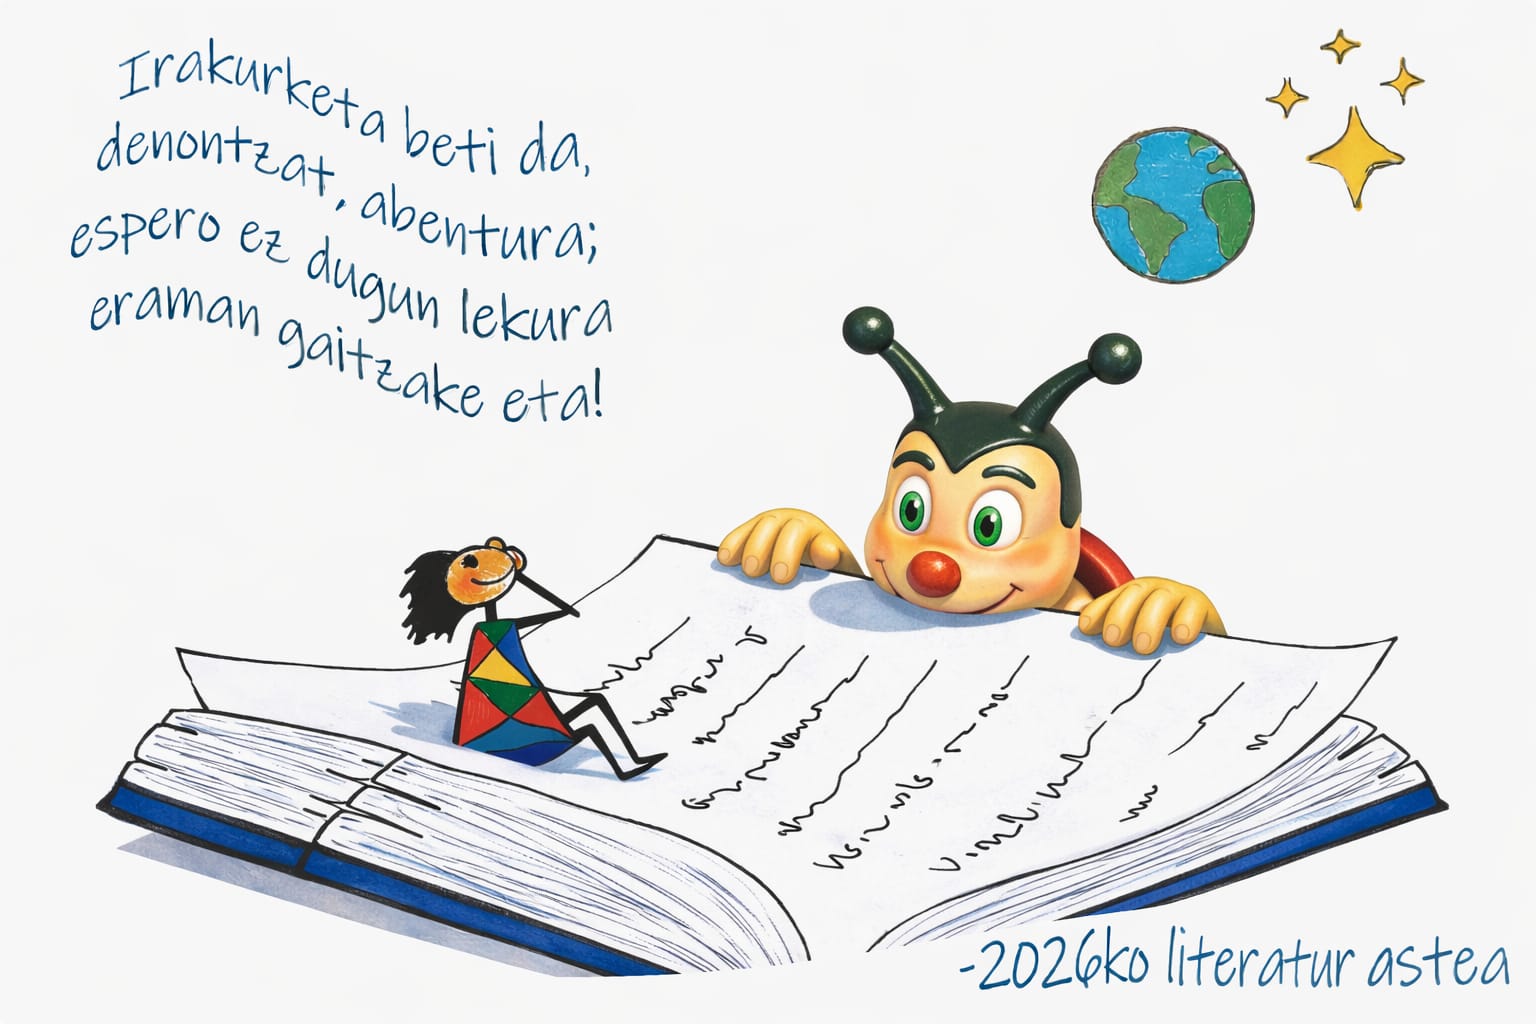 Irakurketa beti da,
denontzat, abentura;
espero ez dugun lekura
eraman gaitzake eta!
-2026ko literatur astea